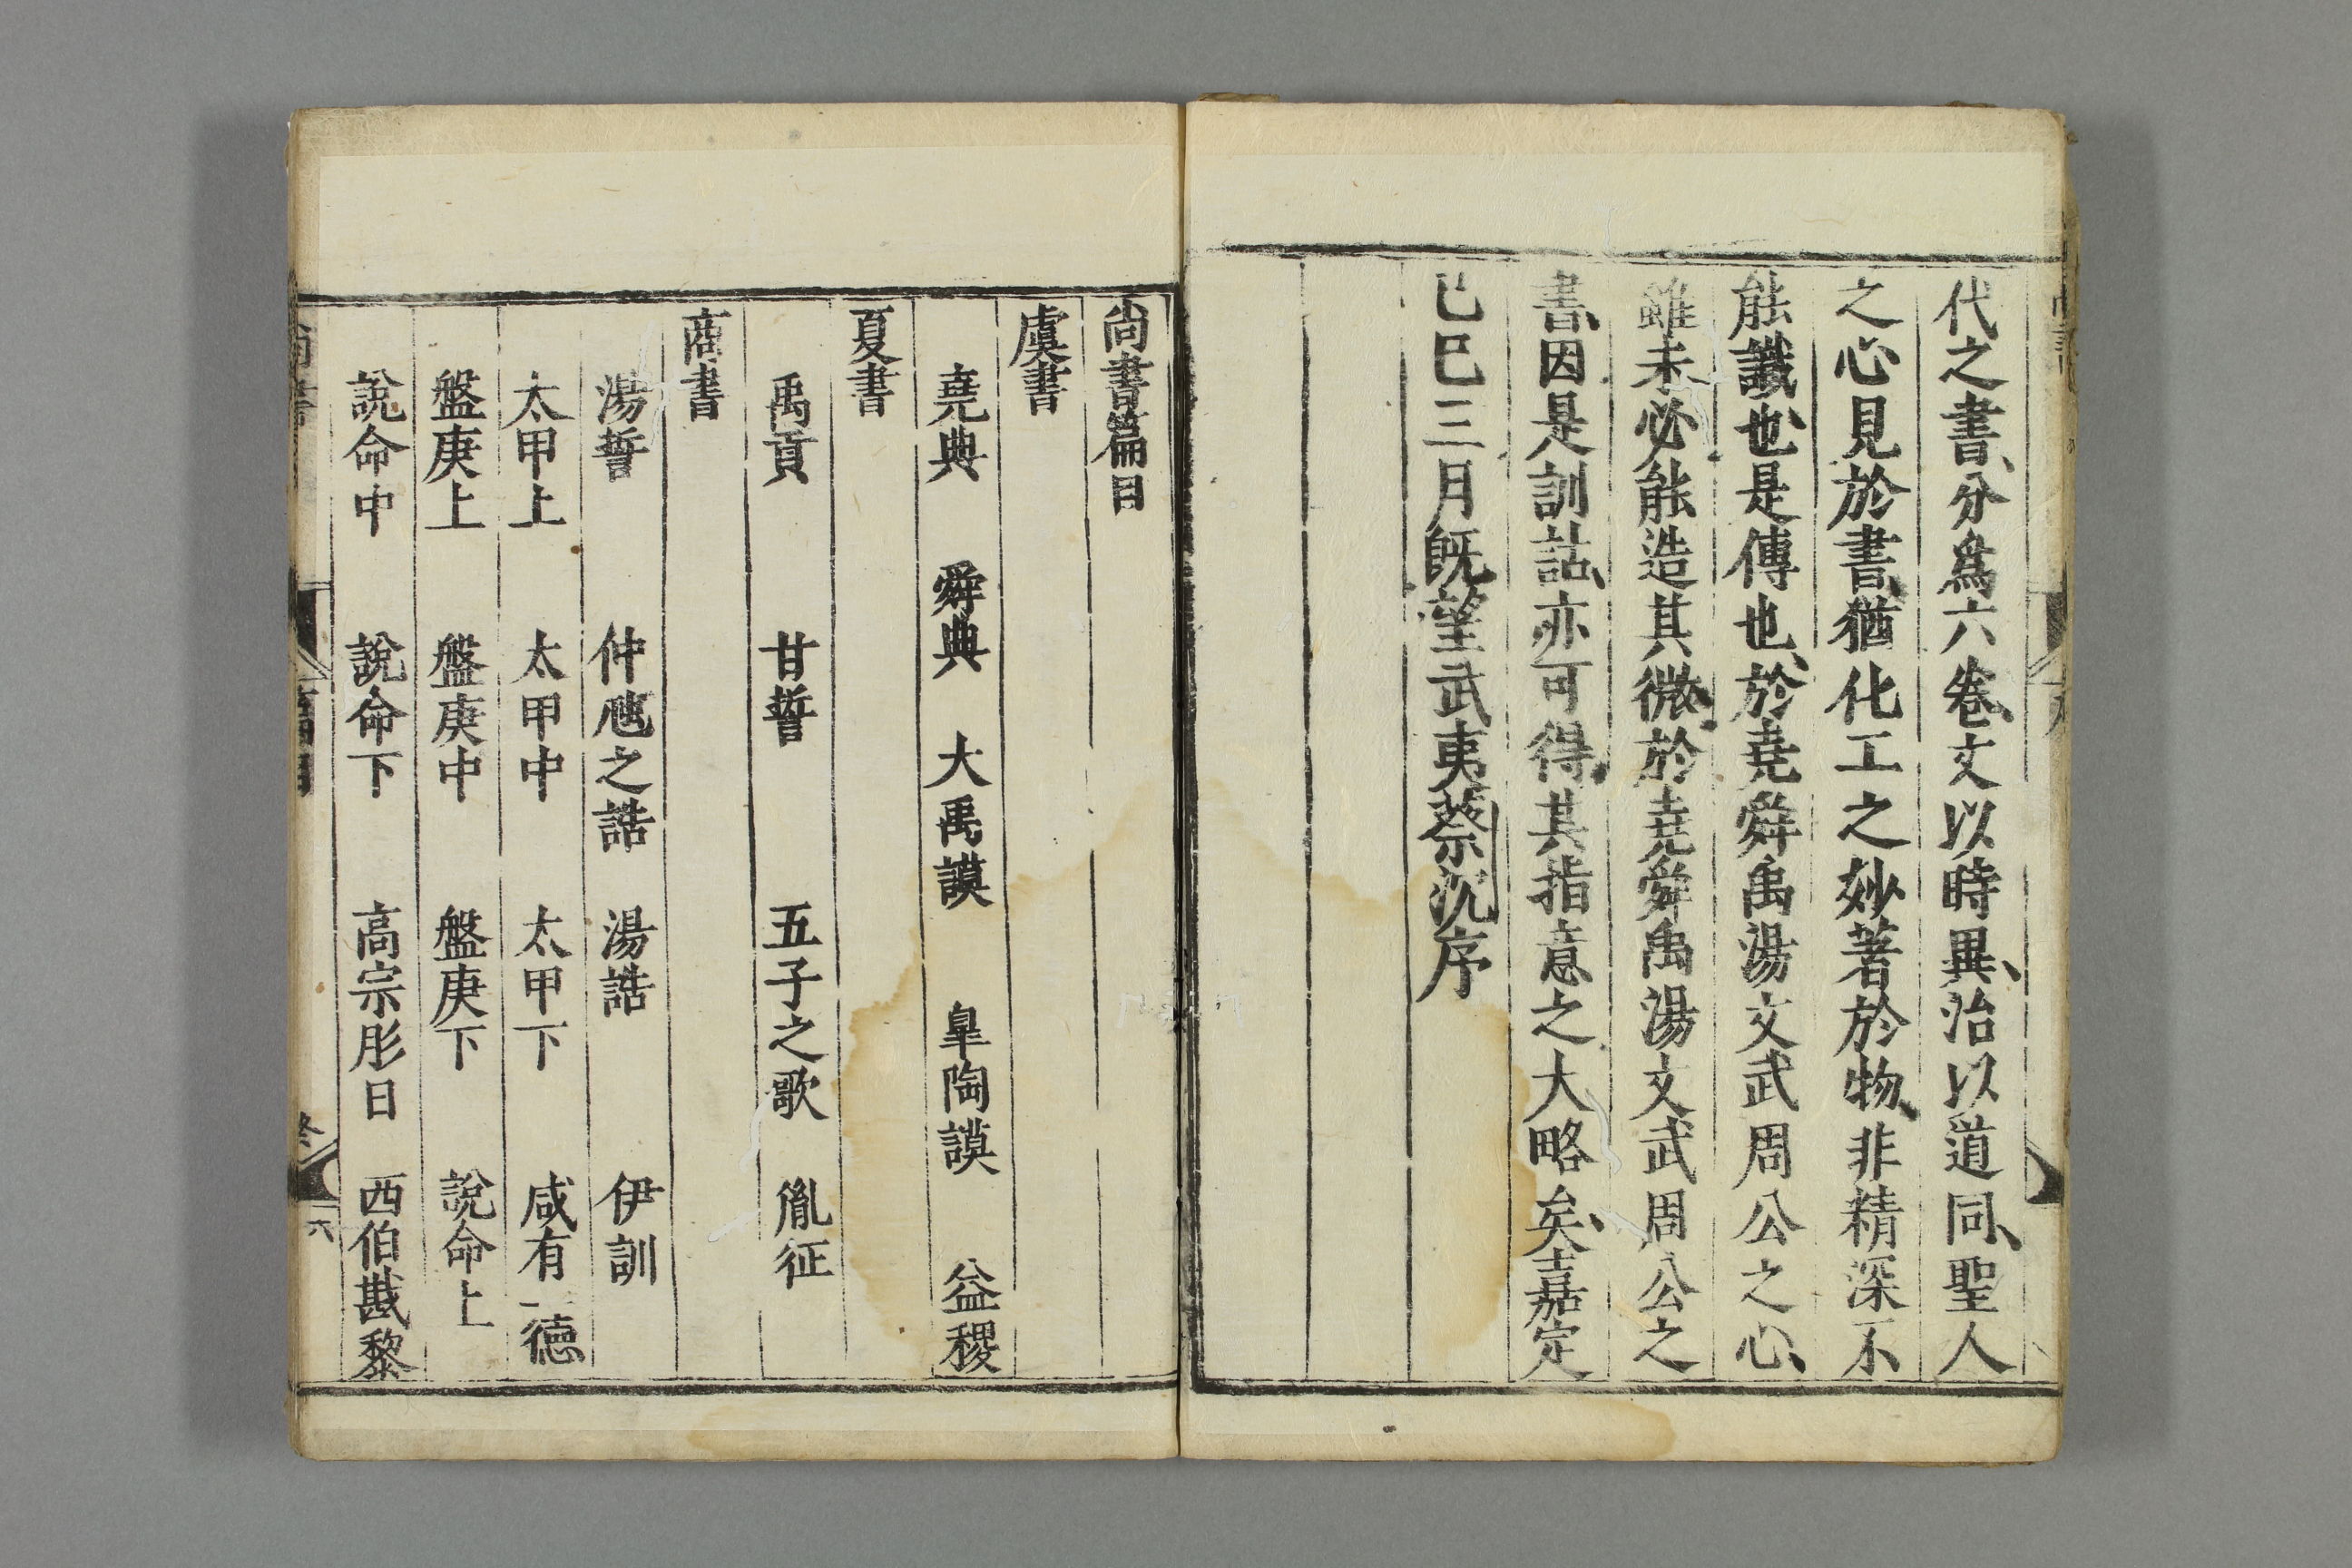 代之書、分爲六卷、文以時異、治以道同、聖人
之心見於書、猶化工之妙著於物、非精深不
能識也、是傳也、於堯舜禹湯文武周公之心、
雖未必能造其微、於堯舜禹湯文武周公之
書、因是訓詁、亦可得其指意之大略矣、嘉定
已巳三月旣望武夷蔡沉序
尚書篇目
虞書
堯典 舜典 大禹謨 皐陶謨 益稷
夏書
禹貢 甘誓 五子之歌 胤征
商書
湯誓 仲虺之誥 湯誥 伊訓
太甲上 太甲中 太甲下 咸有一德
盤庚上 盤庚中 盤庚下 說命上
說命中 說命下 高宗肜日 西伯戡黎
尚書 篇目 終 六